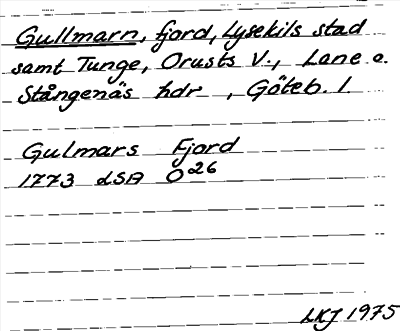 Gullmarn, fjord, Lysekils stad
samt Tunge, Orusts V., Lane o.
Stångenäs hdr , Göteb. l
Gulmars Fjord
1773 LSA O26
LKJ 1975